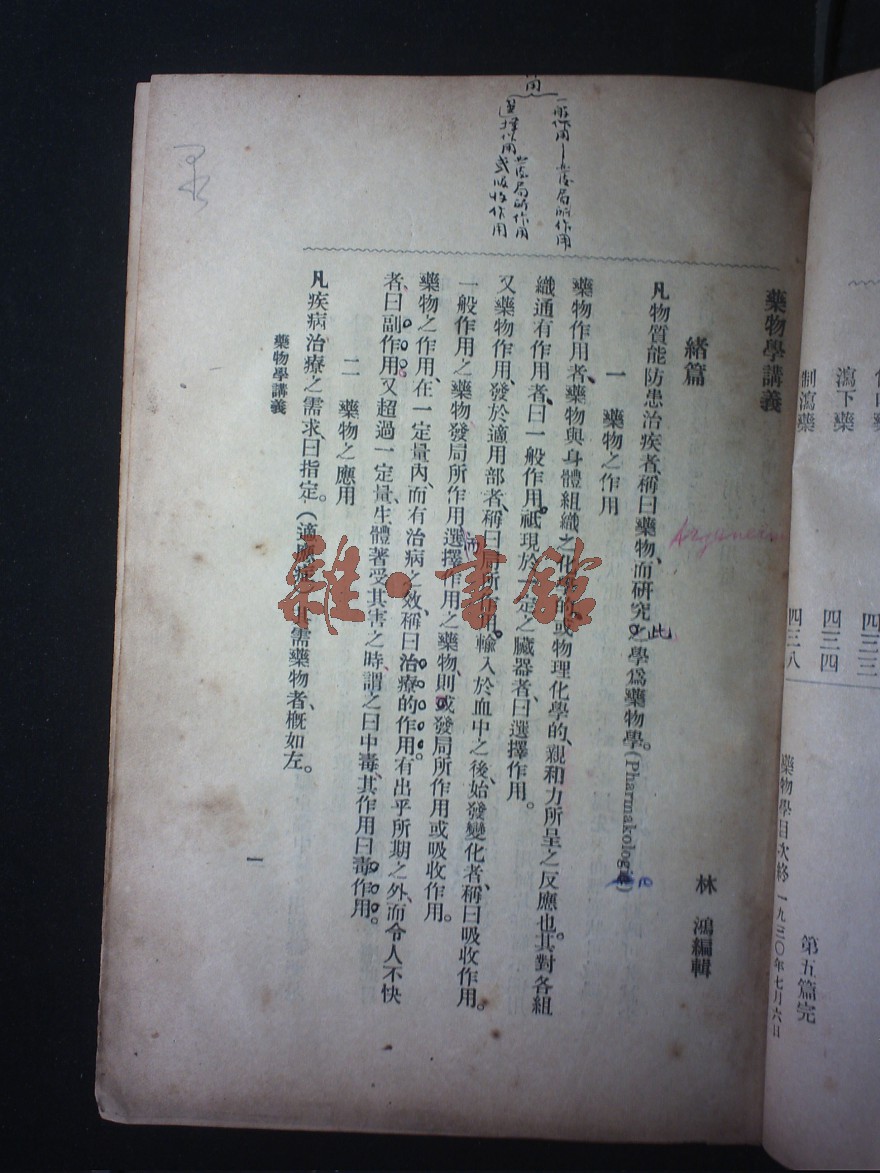 制瀉藥
瀉下藥
四三八
四三四
四三三
第五篇完
藥物學目次終 一九三〇年七月六日
藥物學講義
緒篇
林 鴻編輯
凡物質能防患治疾者、稱曰藥物、而研究此之學爲藥物學。(Pharmakologie)
一 藥物之作用
藥物作用者、藥物與身體組織之化學的、或物理化學的、親和力所呈之反應也。其對各組
織通有作用者、曰一般作用。祗現於一定之臟器者、曰選擇作用。
又藥物作用、發於適用部者、稱曰局所作用。輸入於血中之後、始發變化者、稱曰吸收作用。
一般作用之藥物發局所作用、而選擇作用之藥物、則或發局所作用或吸收作用。
藥物之作用、在一定量內、而有治病之效、稱曰治療的作用。有出乎所期之外、而令人不快
者、曰副作用。又超過一定量、生體著受其害之時、謂之曰中毒、其作用曰毒作用。
二 藥物之應用
凡疾病治療之需求、曰指定。(適應症)
需藥物者、概如左。
藥物學講義
一
一般作用
局所作用
選擇作用
局所作用
或吸收作用
雜·書館